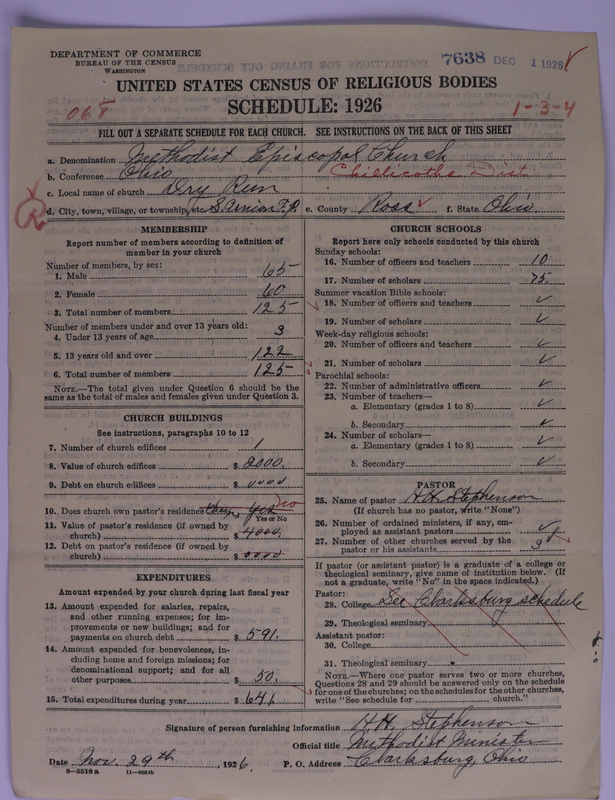 DEPARTMENT OF COMMERCE
BUREAU OF THE CENSUS
WASHINGTON
7638 DEC 1 1926
UNITED STATES CENSUS OF RELIGIOUS BODIES
SCHEDULE: 1926
068
1-3-4
FILL OUT A SEPARATE SCHEDULE FOR EACH CHURCH. SEE INSTRUCTIONS ON THE BACK OF THIS SHEET
a. Denomination Methodist Episcopal Church
b. Conference Ohio Chillicothe Dist
c. Local name of church Dry Run
d. City, town, village, or township, etc. S. Union T.P. e. County Ross f. State Ohio
MEMBERSHIP
Report number of members according to definition of
member in your church
Number of members, by sex:
1. Male 65
2. Female 60
3. Total number of members 125
Number of members under and over 13 years old:
4. Under 13 years of age 3
5. 13 years old and over 122
6. Total number of members 125
NOTE.—The total given under Question 6 should be the
same as the total of males and females given under Question 3.
CHURCH BUILDINGS
See instructions, paragraphs 10 to 12
7. Number of church edifices 1
8. Value of church edifices $ 2000.
9. Debt on church edifices $ 0000
10. Does church own pastor's residence yes no
Yes or No
11. Value of pastor's residence (if owned by
church) $ 4000.
12. Debt on pastor's residence (if owned by
church) $ 0000
EXPENDITURES
Amount expended by your church during last fiscal year
13. Amount expended for salaries, repairs,
and other running expenses; for im-
provements or new buildings; and for
payments on church debt $ 591.
14. Amount expended for benevolences, in-
cluding home and foreign missions; for
denominational support; and for all
other purposes $ 50.
15. Total expenditures during year $ 641
CHURCH SCHOOLS
Report here only schools conducted by this church
Sunday schools:
16. Number of officers and teachers 10
17. Number of scholars 75.
Summer vacation Bible schools:
18. Number of officers and teachers ✓
19. Number of scholars ✓
Week-day religious schools:
20. Number of officers and teachers ✓
21. Number of scholars ✓
Parochial schools:
22. Number of administrative officers ✓
23. Number of teachers—
a. Elementary (grades 1 to 8) ✓
b. Secondary ✓
24. Number of scholars—
a. Elementary (grades 1 to 8) ✓
b. Secondary ✓
PASTOR
25. Name of pastor H. H. Stephenson
(If church has no pastor, write "None")
26. Number of ordained ministers, if any, em-
ployed as assistant pastors ✓
27. Number of other churches served by the
pastor or his assistants 3
If pastor (or assistant pastor) is a graduate of a college or
theological seminary, give name of institution below. (If
not a graduate, write "No" in the space indicated.)
Pastor:
28. College See Clarksburg schedule
29. Theological seminary
Assistant pastor:
30. College
31. Theological seminary
NOTE.—Where one pastor serves two or more churches,
Questions 28 and 29 should be answered only on the schedule
for one of the churches; on the schedules for the other churches,
write "See schedule for church."
Signature of person furnishing information H. H. Stephenson
Official title Methodist Minister
Date Nov. 29th, 1926. P. O. Address Clarksburg, Ohio
8—5518a